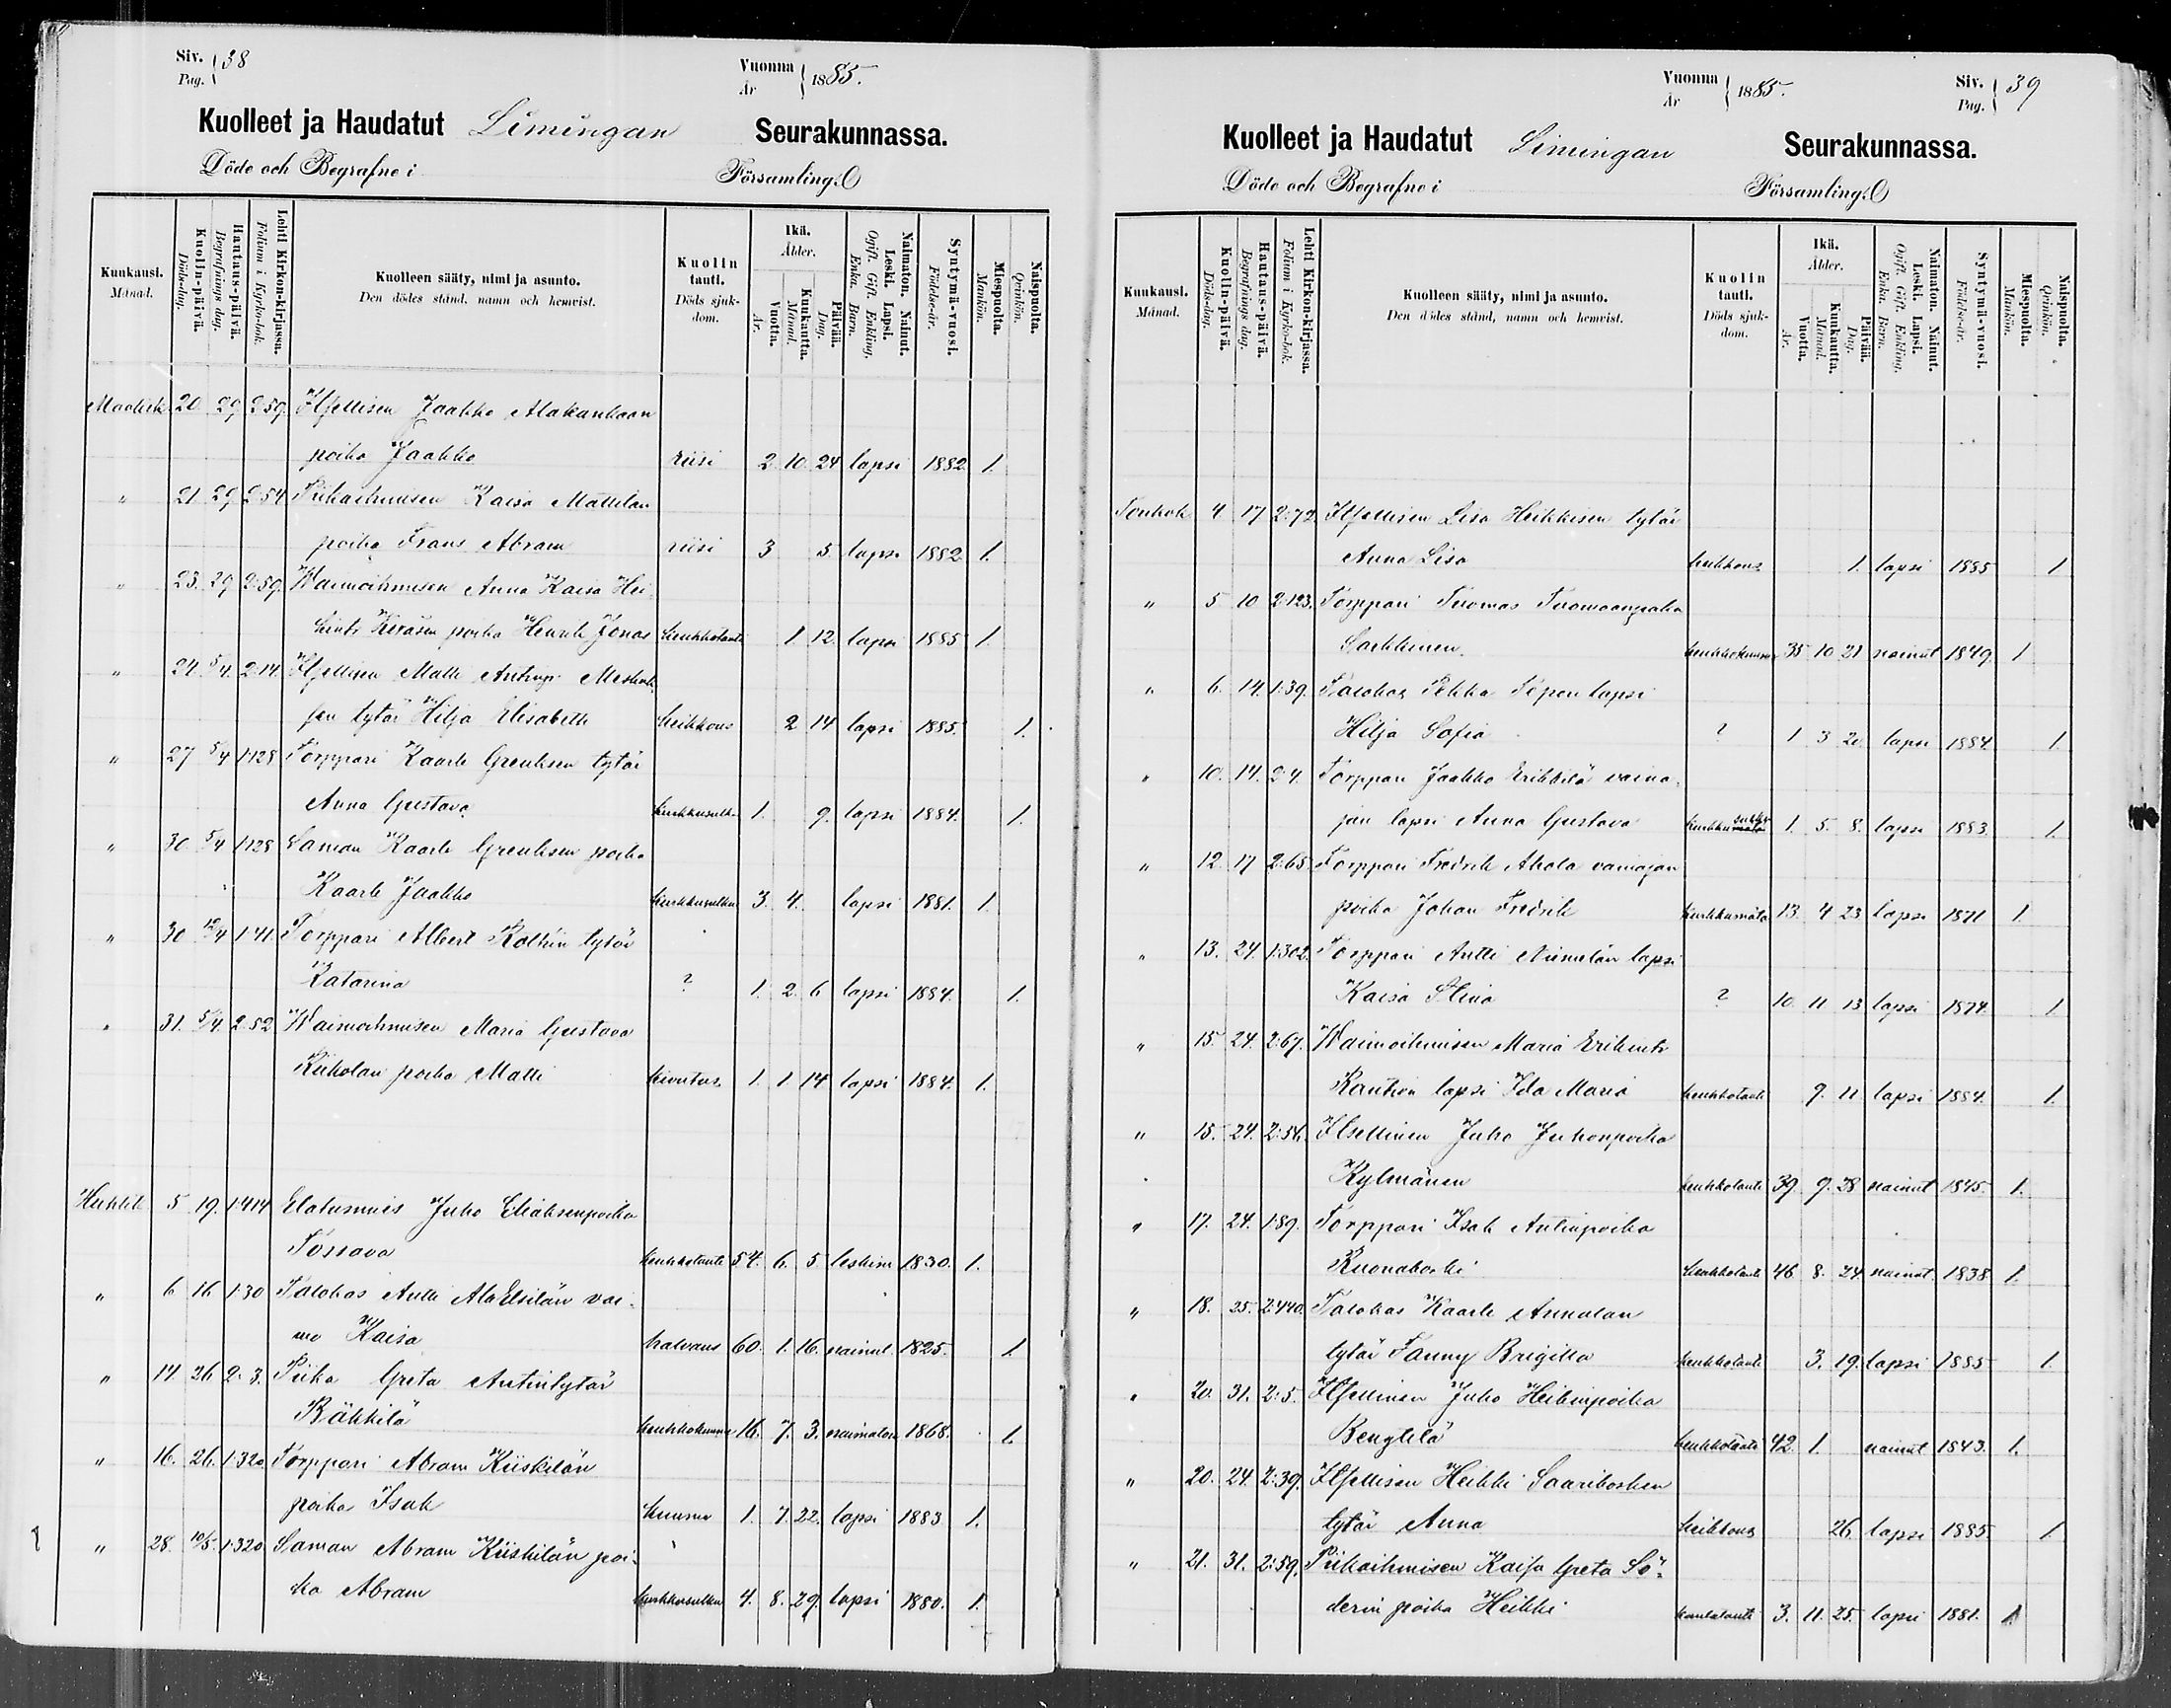 Siv. Pag. 38
Vuonna År 1885.
Kuolleet ja Haudatut Limingan Seurakunnassa.
Döde och Begrafne i Församling.
Kuukausi. Månad.
Kuolin-päivä. Döds-dag.
Hautaus-päivä. Begrafnings dag.
Lehti Kirkon-kirjassa. Folium i Kyrko-bok.
Kuolleen sääty, nimi ja asunto.
Den dödes stånd, namn och hemvist.
Kuolin tauti. Döds sjuk-dom.
Ikä. Ålder.
Vuotta. År.
Kuukautta. Månad.
Päivää. Dag.
Naimaton. Nainut. Leski. Lapsi. Ogift. Gift. Enkling. Enka. Barn.
Syntymä-vuosi. Födelse-år.
Miespuolta. Mankön.
Naispuolta. Qvinkön.
Maalisk. 20. 29 2:59. Itsellisen Jaakko Alakankaan
poika Jaakko riisi 2 10 24 lapsi 1882 1.
" 21 29 2:54 Piikaihmisen Kaisa Mattilan
poika Frans Abram riisi 3 5 lapsi 1882 1.
" 23. 29 2:59. Waimoihmisen Anna Kaisa Hei
kintr Keräsen poika Henrik Jonas keuhkotauti 1 12. lapsi 1885 1.
" 24 5/4. 2:14. Itsellisen Matti Antinp.
sen tytär Hilja Elisabeth heikkous 2 14 lapsi 1885. 1.
" 27 5/4 1:128 Torppari Kaarle Greuksen tytär
Anna Gustava kurkkusulk. 1. 9. lapsi 1884. 1.
" 30. 5/4 1:128 Saman Kaarle Greuksen poika
Kaarle Jaakko kurkkusulku 3. 4. lapsi 1881. 1.
" 30 12/4 1:41. Torppari Albert Koltin tytär
Katarina ? 1. 2. 6 lapsi 1884. 1.
" 31. 5/4. 2:52 Waimoihmisen Maria Gustava
Kiikolan poika Matti kivutus 1. 1 14 lapsi 1884. 1.
Huhtik. 5 19. 1:414 Elatusmies Juho Eliaksenpoika
Tossava keuhkotauti 54. 6. 5 leskim 1830. 1.
" 6 16 1:30 Talokas Antti AlaEtsilän vai-
mo Kaisa halvaus 60. 1. 16. nainut. 1825. 1.
" 14 26 2:3. Piika Greta Antintytär
Räkkilä keuhkokuume 16. 7. 3. naimaton 1868. 1.
" 16. 26. 1:320 Torppari Abram Kiiskilän
poika Isak kuume 1. 7. 22. lapsi 1883 1.
" 28. 10/5. 1:320 Saman Abram Kiiskilän poi-
ka Abram kurkkusulku 4. 8. 29. lapsi 1880. 1.
Vuonna År 1885.
Siv. Pag. 39
Kuolleet ja Haudatut Limingan Seurakunnassa.
Döde och Begrafne i Församling.
Kuukausi. Månad.
Kuolin-päivä. Döds-dag.
Hautaus-päivä. Begrafnings dag.
Lehti Kirkon-kirjassa. Folium i Kyrko-bok.
Kuolleen sääty, nimi ja asunto.
Den dödes stånd, namn och hemvist.
Kuolin tauti. Döds sjuk-dom.
Ikä. Ålder.
Vuotta. År.
Kuukautta. Månad.
Päivää. Dag.
Naimaton. Nainut. Leski. Lapsi. Ogift. Gift. Enkling. Enka. Barn.
Syntymä-vuosi. Födelse-år.
Miespuolta. Mankön.
Naispuolta. Qvinkön.
Toukok 4. 17 2:72. Itsellisen Lisa Heikkisen tytär
Anna Lisa heikkous 1. lapsi 1885 1
" 5 10 2:123. Torppari Tuomas Tuomaanpoika
Sarkkinen. keuhkokuume 35 10 21 nainut 1849. 1
" 6. 14. 1:39. Talokas Pekka Tepon lapsi
Hilja Sofia ? 1 3 20 lapsi 1884. 1.
" 10. 14. 2:4. Torppari Jaakko Erikkilä vaina-
jan lapsi Anna Gustava kurkkusulku 1. 5. 8. lapsi 1883. 1.
" 12. 17 2:65. Torppari Fredrik Ahola vainajan
poika Johan Fredrik kurkkumätä 13. 4 23 lapsi 1871 1.
" 13. 24. 1:302. Torppari Antti Niemelän lapsi
Kaisa Stina ? 10. 11 13 lapsi 1874. 1
" 15. 24. 2:67. Waimoihmisen Maria Erikintr
Raution lapsi Ida Maria keuhkotauti 9. 11 lapsi 1884. 1.
" 15. 24. 2:56. Itsellinen Juho Juhonpoika
Kylmänen keuhkotauti 39. 9. 28 nainut 1845. 1.
" 17. 24. 1:89. Torppari Isak Antinpoika
Ruonakoski keuhkotauti 46 8. 24. nainut. 1838. 1.
" 18. 25. 2:440. Talokas Kaarle Annalan
tytär Fanny Brigitta keuhkotauti 3. 19. lapsi 1885 1.
" 20. 31. 2:5. Itsellinen Juho Heikinpoika
Bengtilä keuhkotauti 42. 1. nainut 1843. 1.
" 20. 24. 2:39. Itsellisen Heikki Saarikosken
tytär Anna heikkous 26. lapsi 1885. 1
" 21. 31. 2:59. Piikaihmisen Kaisa Greta Sö-
derin poika Heikki 3. 11. 25. lapsi 1881. 1